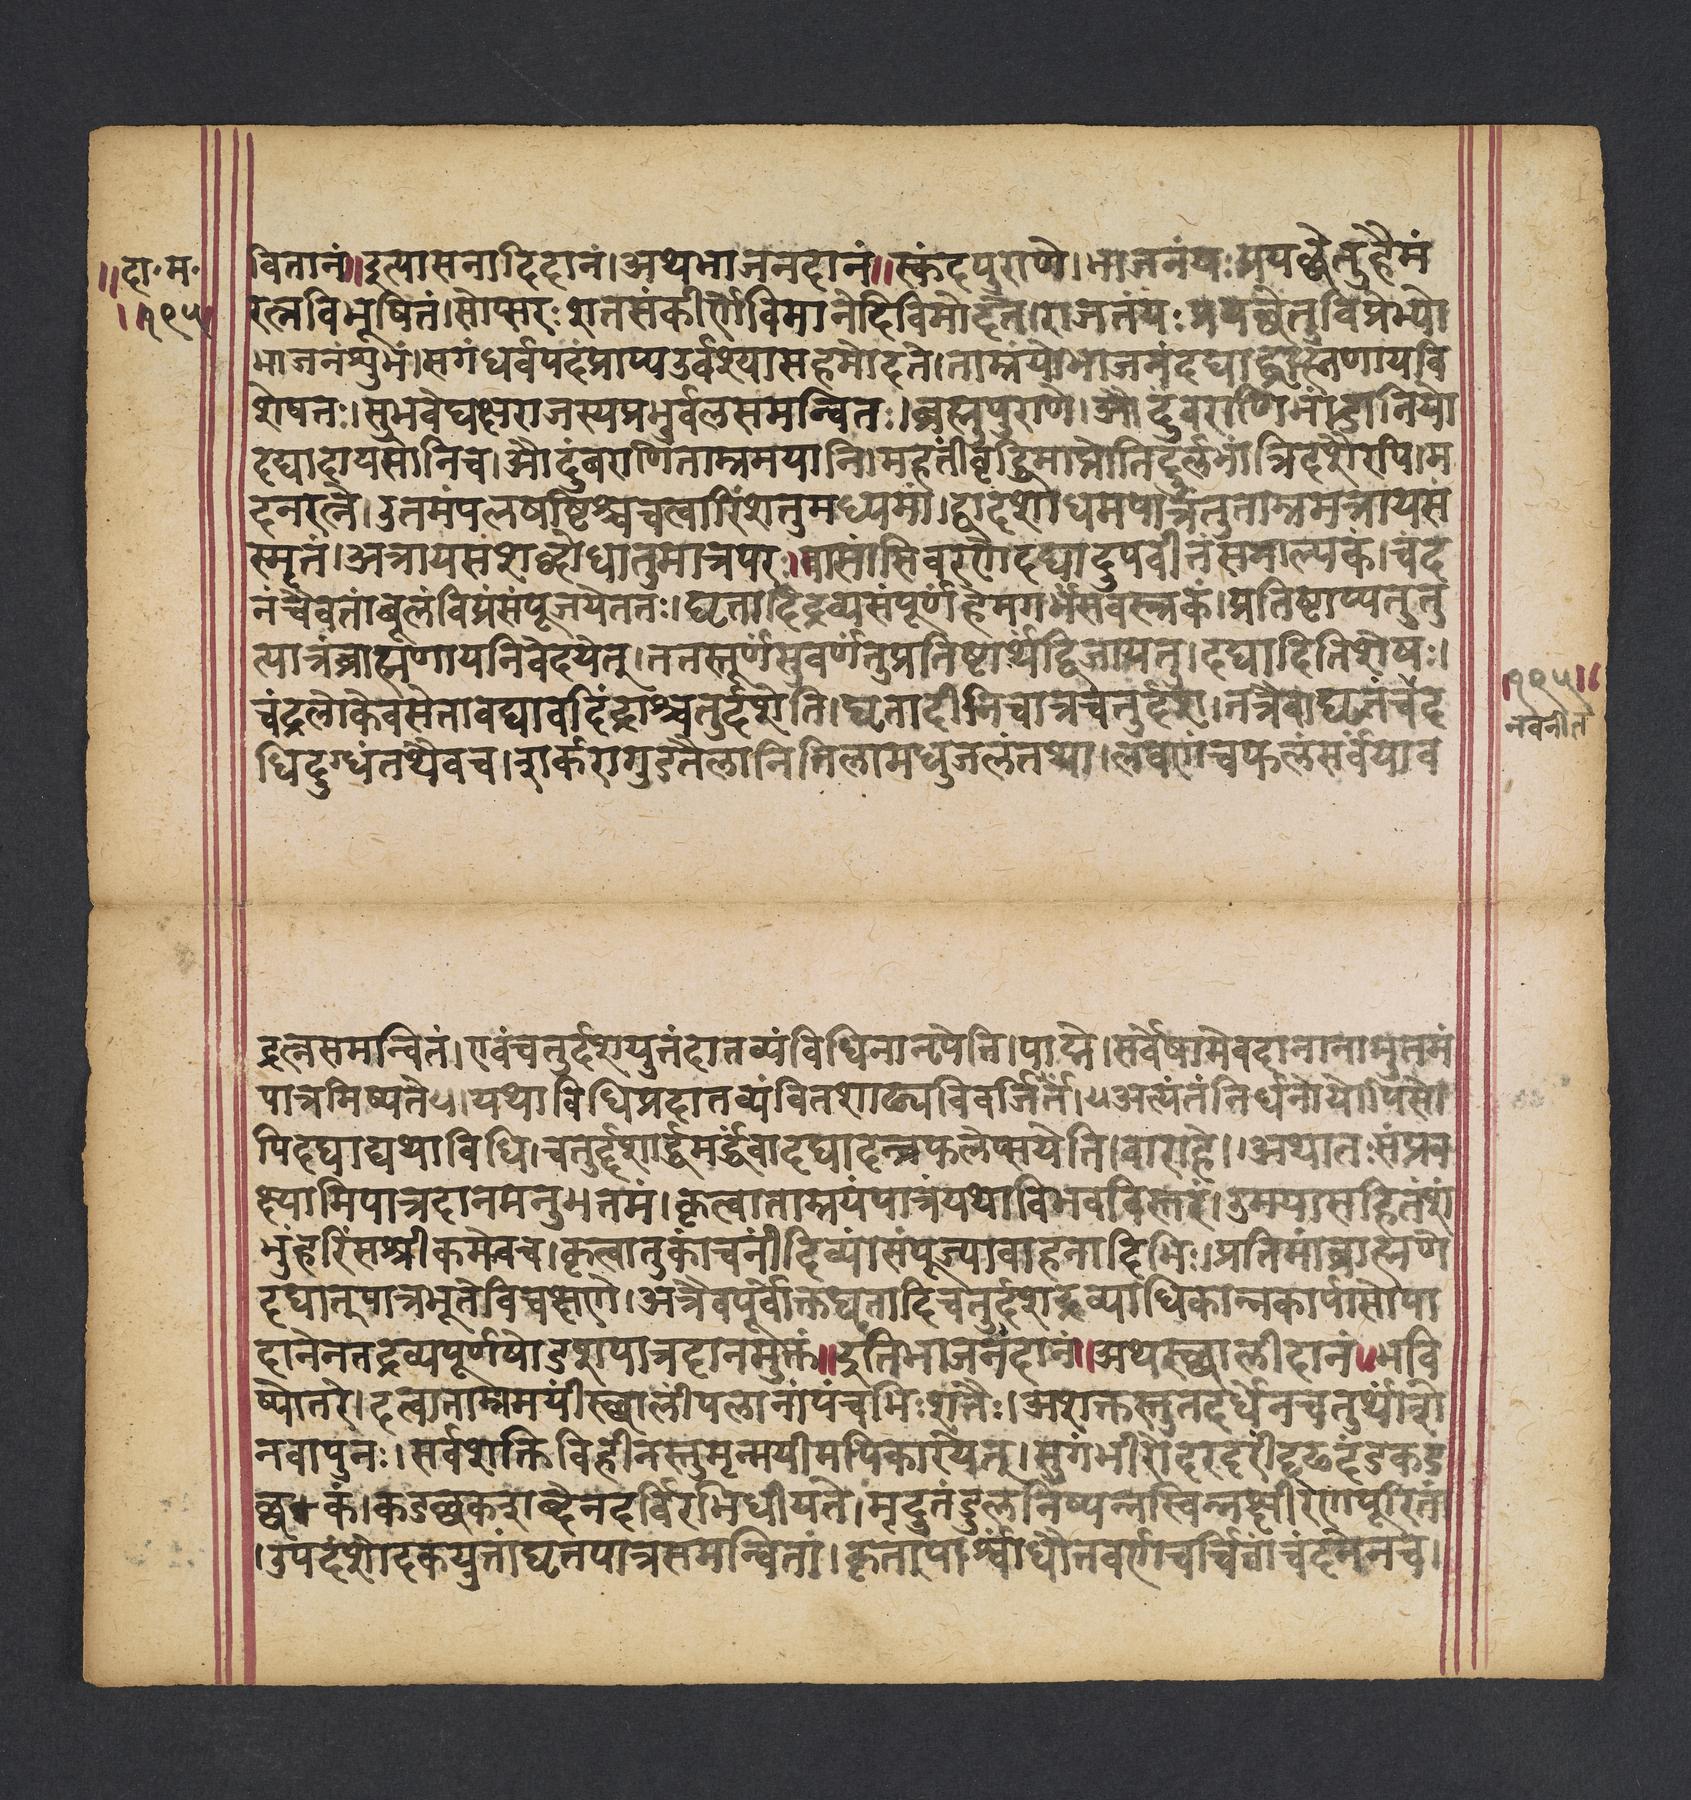 ॥दा॰म॰
॥१९५॥
वितानं॥इत्यासनादिदानं।अथभाजनदानं॥स्कंदपुराणे।भाजनंयःप्रयच्छेत्तुहैमं
रत्नविभूषितं।सोप्सरःशतसंकीर्णेविमानेदिविमोदते।राजतंयःप्रयच्छेत्तुविप्रेभ्यो
भाजनंशुभं।सगंधर्वपदंप्राप्यउर्वश्यासहमोदते।ताम्रंयोभाजनंदद्याद्ब्राह्मणायवि
शेषतः।सुभवेद्यक्षराजस्यप्रभुर्बलसमन्वितः।ब्रह्मपुराणे।औदुंबराणिभांडानियो
दद्यादायसानिच।औदुंबराणिताम्रमयानि।महतींवृद्धिमाप्नोतिदुर्लभांत्रिदशैरपि।म
दनरत्ने।उतमंपलषष्टिश्चचत्वारिंशत्तुमध्यमं।द्वादशोधमपात्रंतुताम्रमत्रायसं
स्मृतं।अत्रायसशब्दोधातुमात्रपरः॥वासांसिवरणेदद्यादुपवीतंसमाल्यकं।चंद
नंचैवतांबूलंविप्रंसंपूजयेततः।घृतादिद्रव्यसंपूर्णंहेमगर्भंसवस्त्रकं।प्रतिष्टाप्यतुत
त्पात्रंब्राह्मणायनिवेदयेत्।ततस्तूर्णंसुवर्णंतुप्रतिष्टार्थंद्विजायतु।दद्यादितिशेषः।
चंद्रलोकेवसेतावद्यावदिंद्राश्चतुर्दशेति।घृतादीनिचात्रचतुर्दश।तत्रैवाघृतंचैद
॥१९५॥
नवनीतं
धिदुग्धंतथैवच।शर्करागुडतैलानितिलामधुजलंतथा।लवणंचफलंसर्वंयाव
द्रत्नसमन्वितं।एवंचतुर्दशयुतंदातव्यंविधिनानपेति।पाद्मे।सर्वेषामेवदानानामुतमं
पात्रमिष्यते५।यथाविधिप्रदातव्यंवितशाठ्यविवर्जितैः।५अत्यंतंनिर्धनोयोपिसो
पिदद्याद्यथाविधि।चतुर्दशार्द्धमर्द्धंवादद्यादन्नफलेप्सयेति।वाराहे।।अथातःसंप्रव
क्ष्यामिपात्रदानमनुमत्तमं।कृत्वाताम्रयंपात्रंयथाविभवविस्तरं।उमयासहितंशं
भुंहरिंसश्रीकमेवच।कृत्वातुकांचनींदिव्यांसंपूज्यावाहनादिभिः।प्रतिमांब्राह्मणे
दद्यात्पात्रभूतेविचक्षणे।अत्रैवपूर्वोक्तघृतादिचतुर्दशद्रव्याधिकान्नकार्पासोपा
दानेनतद्रव्यपूर्णषोडशपात्रदानमुक्तं॥इतिभाजनदानं॥अथस्छालीदानं॥भवि
ष्योतरे।दत्वाताम्रमयींस्छालींपलानांपंचभिःशतैः।अशक्तस्तुतदर्धेनचतुर्थांशे
नवापुनः।सर्वशक्तिविहीनस्तुमृन्मयीमपिकारयेत्।सुगंभीरोदरदरींदृढदंडकड
च्छुकं।कडच्छुकशब्देनदर्विरभिधीयते।मृदुतंडुलनिष्पन्नस्विन्नक्षीरेणपूरितां
।उपदंशोदकयुतांघृतपात्रसमन्वितां।कृतापार्श्वांधौतवर्णांचर्चितांचंदनेनच।